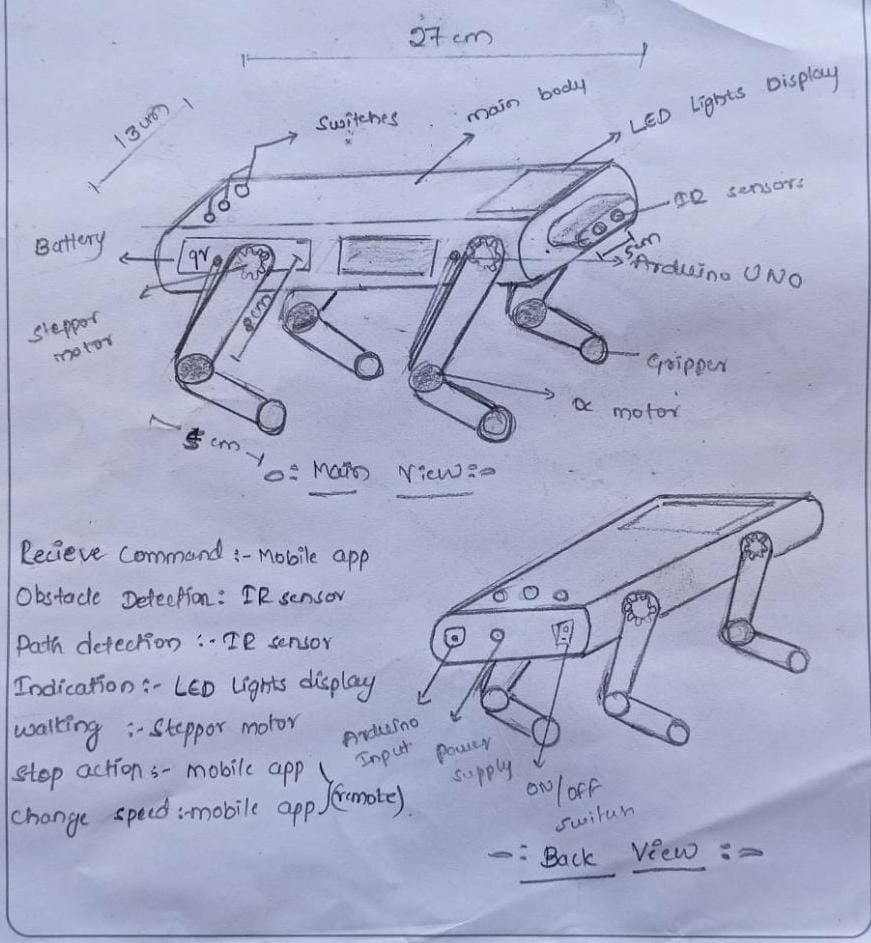 27 cm
13 cm
Switches
main body
LED Lights Display
IR sensors
Battery
9v
5cm
Arduino UNO
Steppor
motor
8cm
Gripper
DC motor
5 cm
Main View
Recieve Command :- Mobile app
Obstacle Detection: IR sensor
Path detection :- IR sensor
Indication :- LED Lights display
walking :- Steppor motor
Stop action :- mobile app
change speed :- mobile app (remote).
Arduino
Input
Power
supply
ON/OFF
switch
Back View